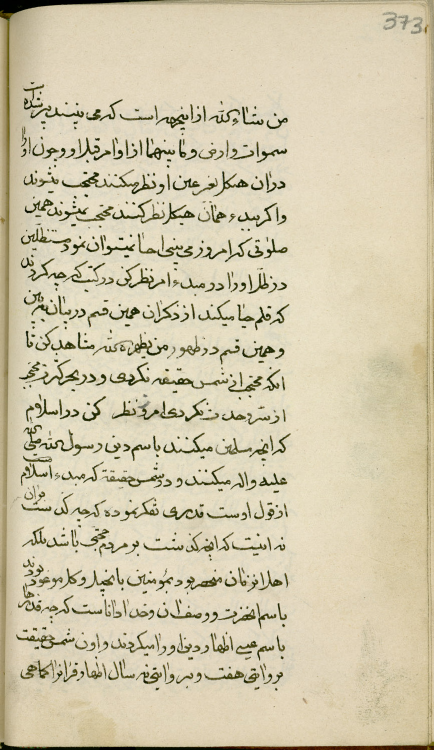 373
من شاء الله از اینجهة است که می بینند بر شده است
سموات و ارض و ما بینهما از اوامر قبل او و چون او را
در ان هیکل بغیر عین او نظر میکنند محتجب میشوند
و اگر ببدء همان هیکل نظر کنند محتجب نمیشوند همین
صلوتی که امروز می بینی احصا نمیتوان نمود مستظلین
در ظل او را در مبدء امر نظر کن در کتب که چه کردند
که قلم حیا میکند از ذکر ان همین قسم در بیان ببین
و همین قسم در ظهور من یظهره الله مشاهده کن تا
انکه محتجب از شمس حقیقة نگردی و در بحر
از نگردی امروز نظر کن در اسلام
که انچه مسلمین میکنند باسم دین رسول الله صلی الله
علیه و اله میکنند و در شمس حقیقة که مبدء اسلام
از قول اوست قدری تفکر نموده که چه گذشت قران
نه اینست که انچه گذشت بر مردم محتجب باشد بلکه
اهل انزمان منحصر بود بمؤمنین بانجیل و کل موعود بودند
باسم انحضرت و وصف ان و خدا داناست که چه قدرها
باسم عیسی اظهار دین او را میکردند و اون شمس حقیقت
بروایتی هفت و بروایتی نه سال اظهار قران را کما هی